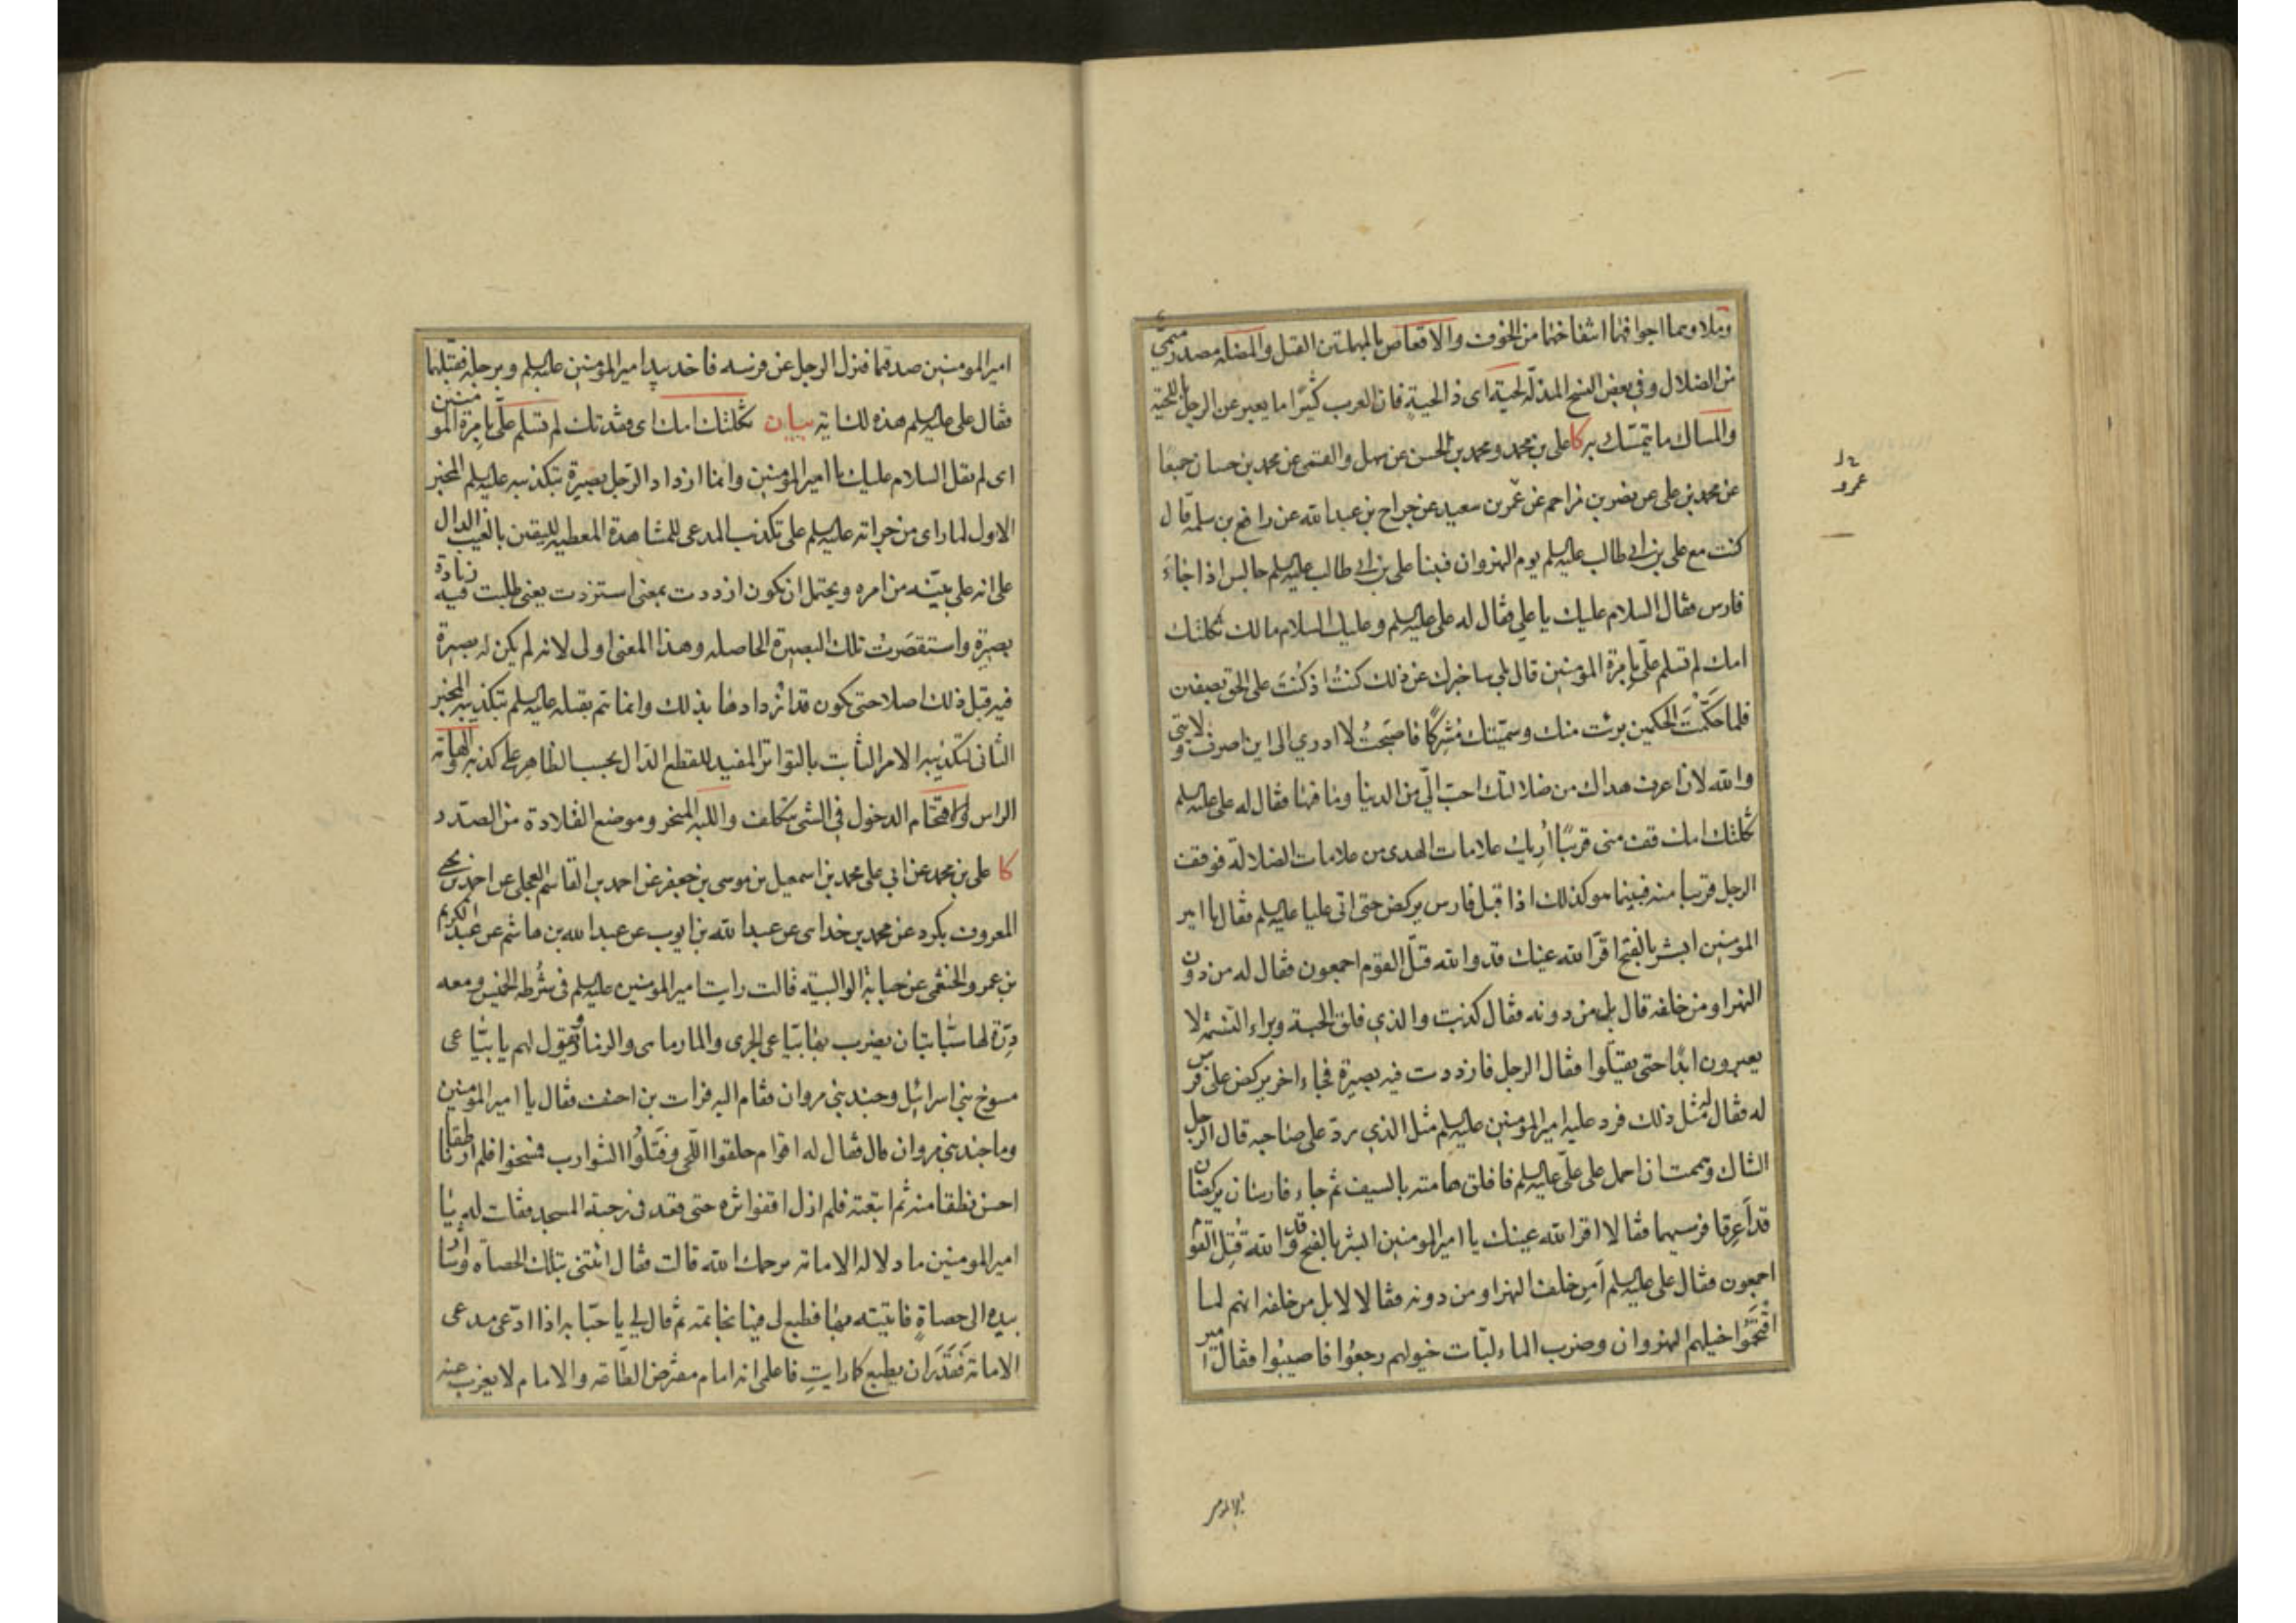 وملاوبها اجوافها انتفاخها من الخوف والاقعاص بالمهملتين القتل والمضله مصدر ميمي
من الضلال وفي بعض النسخ المذلّه لحية اى ذ الحية فان العرب كثيرًا ما يعبر عن الرجل باللحية
والمساك ما يتمسّك به كا على بن محمد ومحمد بن الحسن عن سهل والقمى عن محمد بن حسان جميعًا
عن محمد بن على عن نضر بن مزاحم عن عمر بن سعيد عن جراح بن عبد الله عن رافع بن سلمة قال
عمرو
كنت مع على بن ابي طالب عليه السلم يوم النهروان فبينا على بن ابي طالب عليه السلم جالس اذا جاءَ
فارس فقال السلام عليك يا علي فقال له على عليه السلم وعليك السلام مالك ثكلتك
امك لم تسلم علىّ بإمرة المؤمنين قال بلى ساخبرك عن ذلك كنتُ اذ كنْتَ على الحق بصفين
فلما حَكَّمْتَ الحكمين برئت منك وسمّيتك مُشركًا فاصبحتُ لا ادري الى اين اصرف ولايتى
والله لان اعرف هداك من ضلالتك احبّ الىّ من الدنيا وما فيها فقال له على عليه السلم
ثكلتك امك قف منى قريبًا اُريك علامات الهدى من علامات الضلالة فوقف
الرجل قريبا منه فبينما هو كذلك اذا قبل فارس يركض حتى اتى عليا عليه السلم فقال يا امير
المؤمنين ابشر بالفتح اقرّ الله عينك قد والله قتل القوم اجمعون فقال له من دون
النهر او من خلفه قال بل من دونه فقال كذبت والذي فلق الحبة وبراء النسمة لا
يعبرون ابدًا حتى يقتلوا فقال الرجل فازددت فيه بصيرة فجاء اخر يركض على فرس
له فقال له مثل ذلك فرد عليه امير المؤمنين عليه السلم مثل الذي ردّ على صاحبه قال الرجل
الشاك وهممت ان احمل على علىّ عليه السلم فافلق هامته بالسيف ثم جاء فارسان يركضان
قد اَعرقا فرسيهما فقالا اقرّ الله عينك يا امير المؤمنين ابشر بالفتح قد والله قُتِل القوم
اجمعون فقال على عليه السلم اَمِن خلف النهر او من دونه فقالا لا بل من خلفه انهم لما
اقْتَحَمُوا خيلهم النهروان وضرب الماء لبّات خيولهم رجعُوا فاصيبُوا فقال امير
امير المؤمنين صدقتما فنزل الرجل عن فرسه فاخذ بيد امير المؤمنين عليه السلم وبرجله فقبّلهما
فقال على عليه السلم هذه لك اية بيان ثكلتك امك اى فقدتك لم تسلم علىّ بامرة المؤمنين
اى لم تقل السلام عليك يا امير المؤمنين وانما ازداد الرّجل بصيرة بتكذيبه عليه السلم المخبر
الاول لما راى من جراته عليه السلم على تكذيب المدعى للمشاهدة المعطيه لليقين بالغيب الدال
على انه على بيّنه من امره ويحتمل ان يكون ازددت بمعنى استزدت يعنى طلبت فيه زيادة
بصيرة واستقصَرتُ تلك البصيرة الحاصله وهذا المعنى اولى لانه لم يكن له بصيرة
فيه قبل ذلك اصلا حتى يكون قد ازدادها بذلك وانما تم بقسله عليه السلم بتكذيبه المخبر
الثانى لتكذيبه الامر الثابت بالتواتر المفيد للقطع الدال بحسب الظاهر على كذبه والهامة
الراس والاقتحام الدخول في الشى بتكلف واللبه المنحر وموضع القلادة من الصّدر
كا على بن محمد عن ابي على محمد بن اسمعيل بن موسى بن جعفر عن احمد بن القاسم العجلى عن احمد بن يحيى
المعروف بكرد عن محمد بن خداهى عن عبد الله بن ايوب عن عبد الله بن هاشم عن عبد الكريم
بن عمرو الخثعمى عن حبابة الوالبية قالت رايت امير المؤمنين عليه السلم في شُرطه الخميس ومعه
دِرّة لها سَبابتان يضرب بها بيّاعى الجرى والمارماهى والزمار ويقول لهم يا بيّاعى
مسوخ بنى اسرائيل وجند بنى مروان فقام اليه فرات بن احنف فقال يا امير المؤمنين
وما جند بنى مروان قال فقال له اقوام حلقوا اللّحى وفَتَلُوا الشوارب فمسخوا فلم ار ناطقا
احسن نطقا منه ثم اتبعته فلم ازل اقفوا ثره حتى قعد في رحبة المسجد فقلت له يا
امير المؤمنين ما دلاله الامامه يرحمك الله قالت فقال ائتنى بتلك الحصاة واشار
بيده الى حصاةٍ فاتيته بها فطبع لى فيها بخاتمه ثم قال لي يا حبّابه اذا ادّعى مدعى
الامامة فَقَدَرَ ان يطبع كما رايتِ فاعلمى انه امام مفترض الطاعه والامام لا يعزب عنه